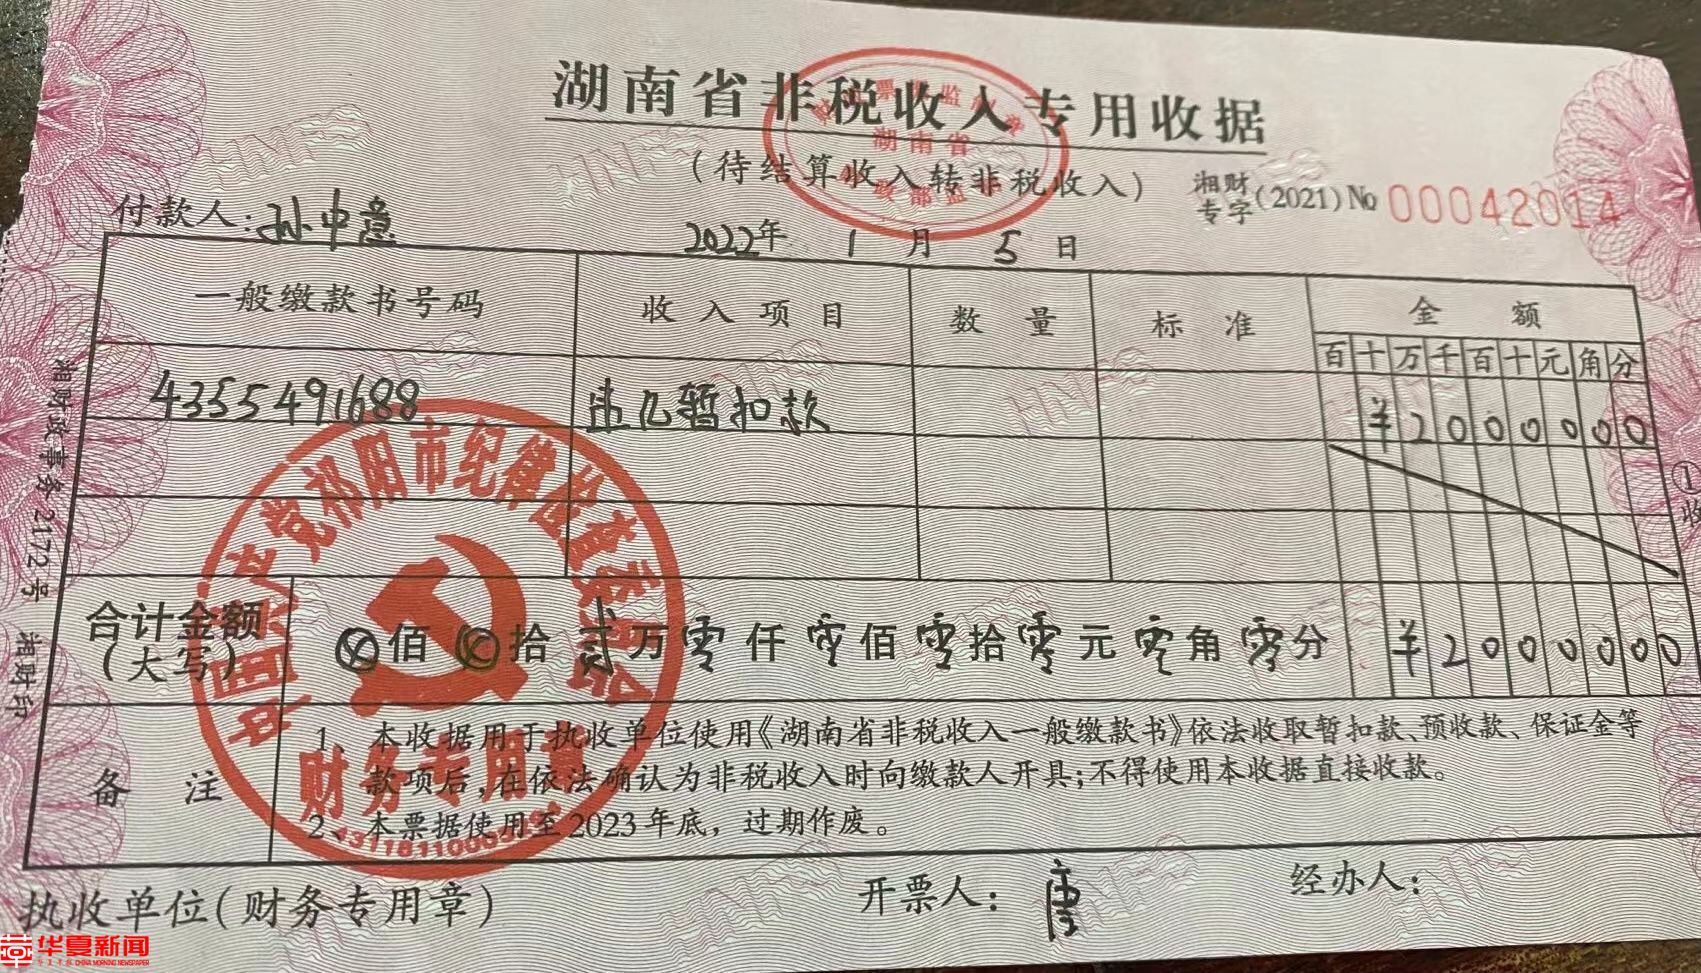 湖南省非税收入专用收据
(待结算收入转非税收入)
湘财专字(2021)№ 00042014
付款人:孙中意 2022年 1 月 5 日
一般缴款书号码 收入项目 数量 标准 金额
百十万千百十元角分
4355491688 违几暂扣款 ¥2000000
合计金额(大写) ⊗佰⊗拾贰万零仟零佰零拾零元零角零分 ¥2000000
备注
1、本收据用于执收单位使用《湖南省非税收入一般缴款书》依法收取暂扣款、预收款、保证金等
款项后,在依法确认为非税收入时向缴款人开具;不得使用本收据直接收款。
2、本票据使用至2023年底,过期作废。
执收单位(财务专用章) 开票人:唐 经办人:
湘财政事务2172号 湘财印
①收
湖南省
中国共产党祁阳市纪律检查委员会
财务专用章
华夏新闻
CHINA MORNING NEWSPAPER